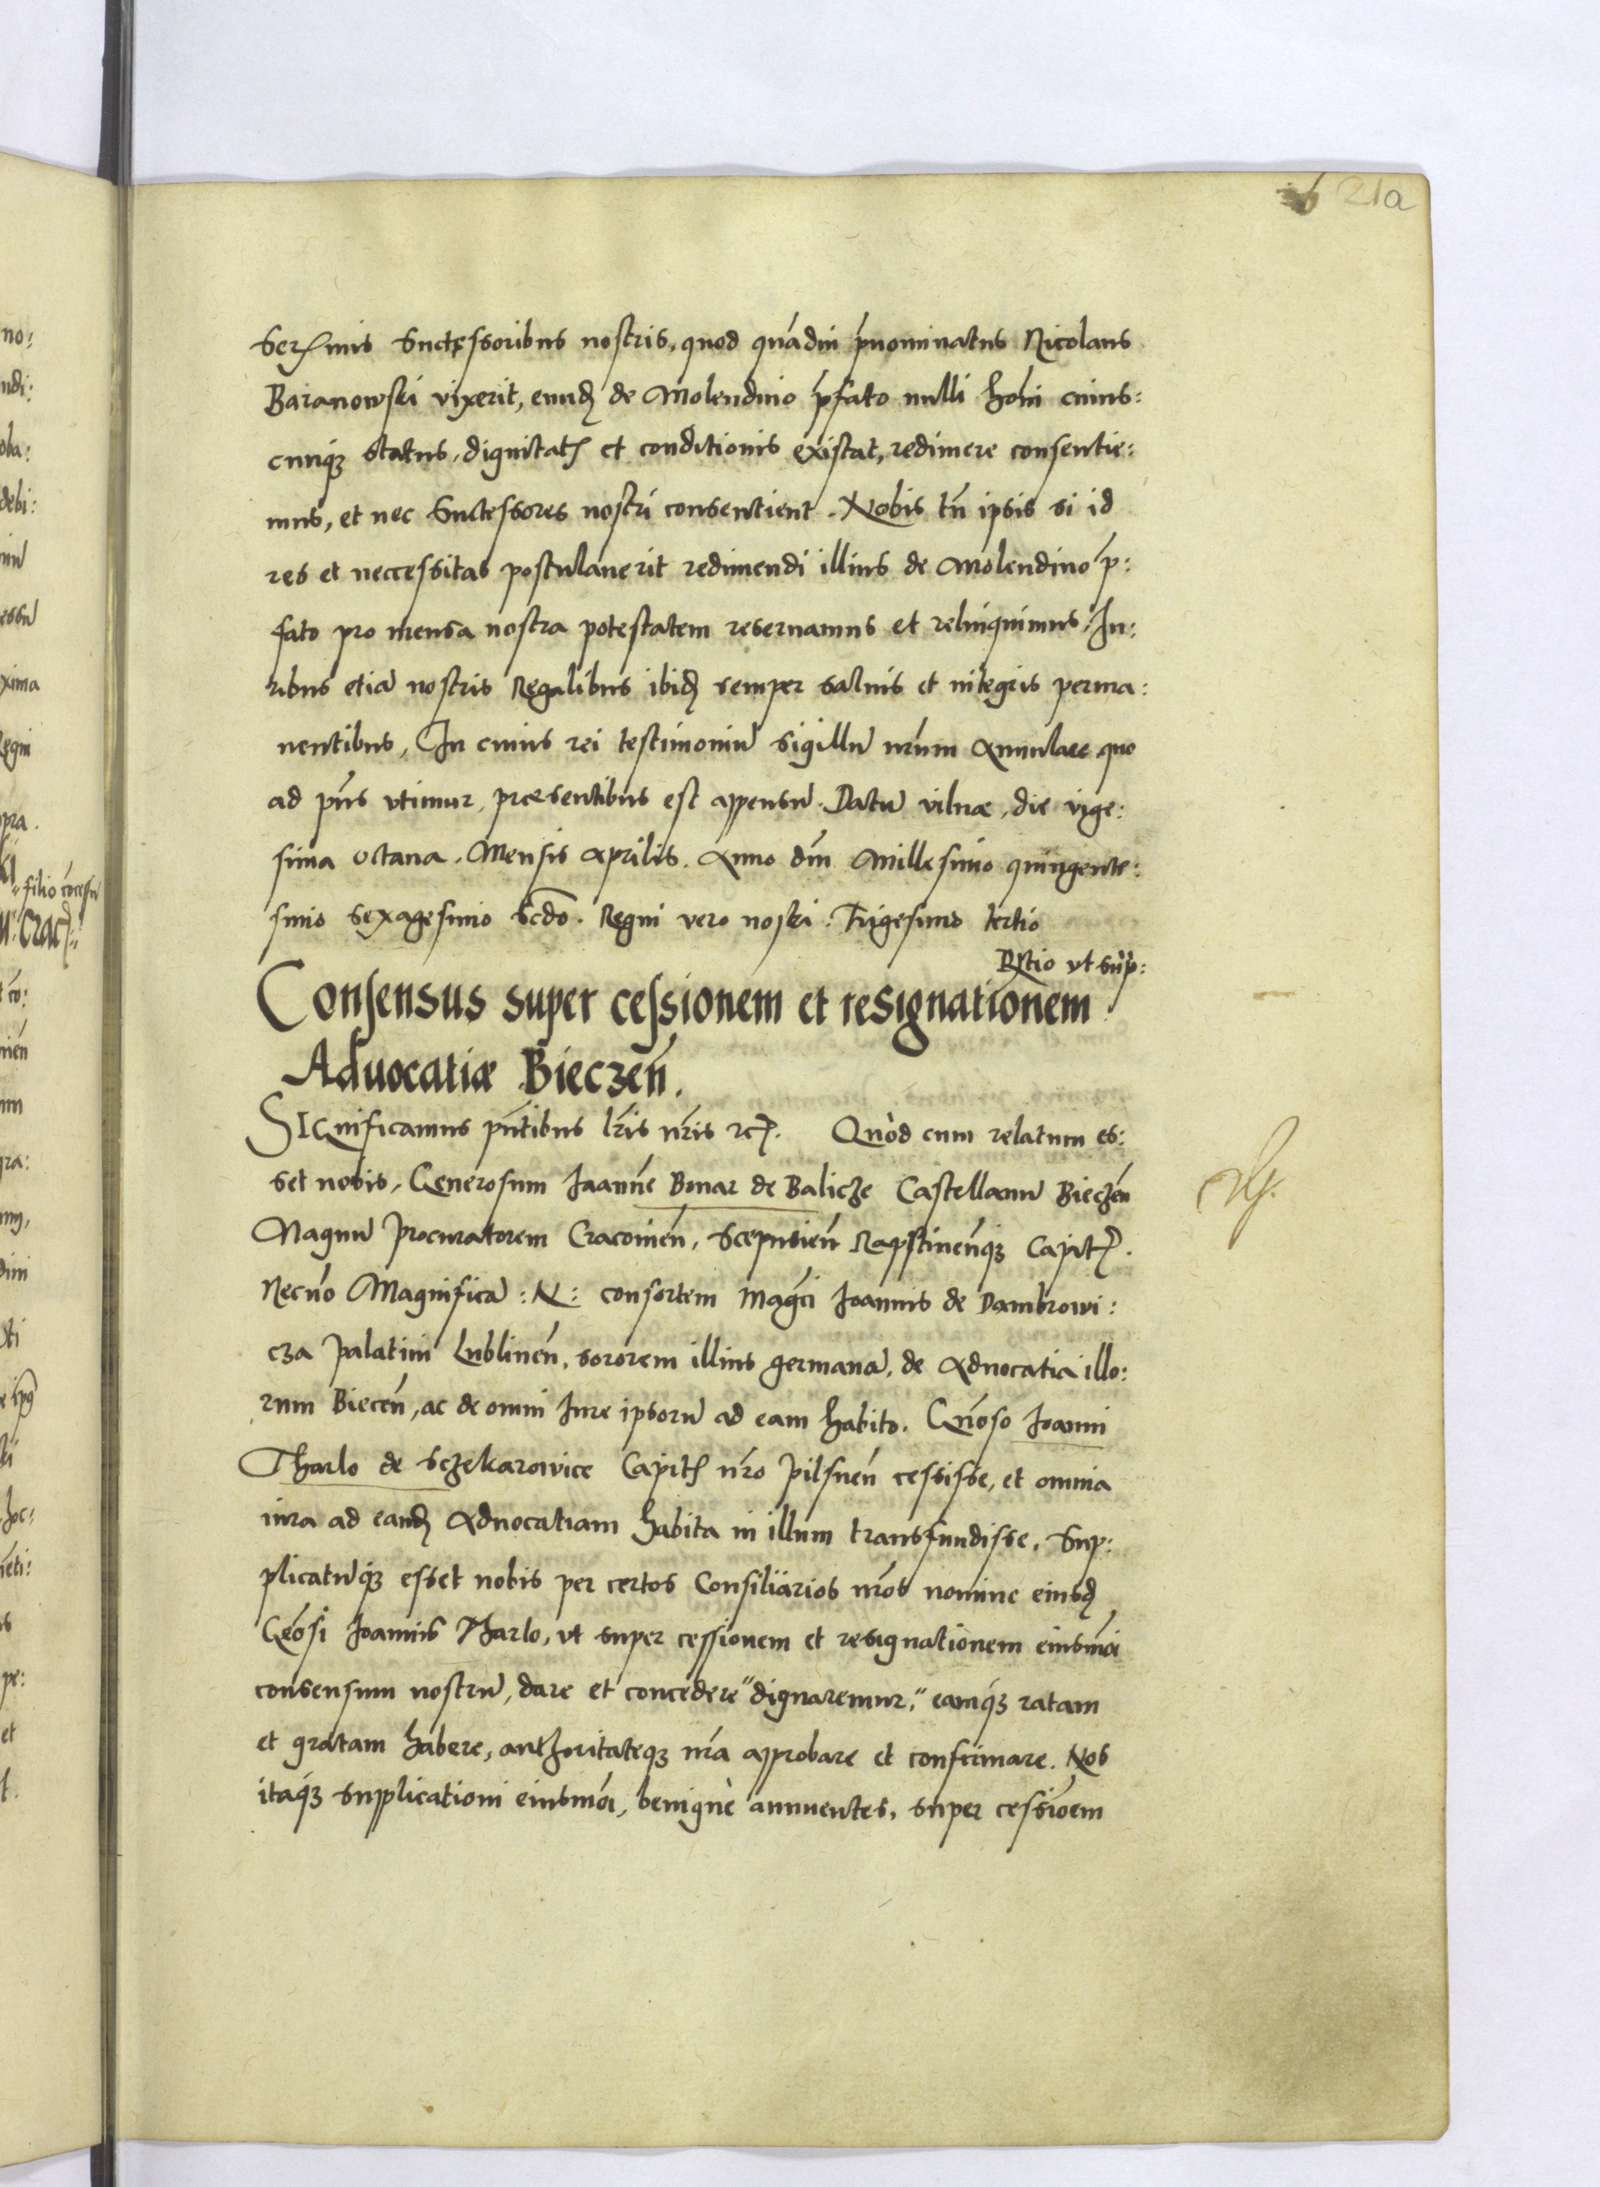 21a
Serꝭmis Successoribus nostris, quod quādiu p̄nominatus Nicolaus
Baranowski vixerit, eundꝫ de Molendino p̄fato nulli hoīni cuius:
cunqꝫ status, dignitatꝭ et conditionis existat, redimere consentie:
mus, et nec Successores nostri consentient. Nobis tn̄ ipsis si id
res et neccessitas postulauerit redimendi illius de Molendino p̄:
fato pro mensa nostra potestatem reseruamus et relinquimus. Iu:
ribus etiā nostris Regalibus ibidꝫ semper saluis et integris perma:
nentibus, In cuius rei testimoniū sigillū nr̄um Annulare quo
ad p̄ns vtimur, præsentibus est appensū. Datū vilnæ, die vige:
sima octaua. Mensis Aprilis. Anno dm̄ Millesimo quingente:
simo Sexagesimo Scdō. Regni vero nostri. Trigesimo tertio
Rltio vt sup̄:
Consensus super cessionem et resignationem
Aduocatiæ Bieczen̄.
SIGnificamus pn̄tibus lr̄is nr̄is ꝛcꝭ. Quòd cum relatum es:
set nobis, Generosum Ioannē Bonar de Balicze Castellanū Bieczen̄
Magnū Procuratorem Cracouien̄, Scepusien̄ Rapstinen̄qꝫ Capitꝭ.
Necnō Magnificā :N: consortem Magci Ioannis de Dambrowi:
cza Palatini Lublinen̄, sororem illius germanā, de Aduocatia illo:
rum Biecen̄, ac de omni Iure ipsorū ad eam habito. Gn̄oso Ioanni
Tharlo de Sczekarowice Capitꝭ nr̄o Pilsnen̄ cessisse, et omnia
iura ad eandꝫ Aduocatiam habita in illum transfundisse. Sup:
plicatūqꝫ esset nobis per certos Consiliarios nr̄os nomine eiusdꝫ
Gēosi Ioannis Tharlo, vt super cessionem et resignationem eiusmōi
consensum nostrū, dare et concedere dignaremur, eamqꝫ ratam
et gratam habere, authoritateqꝫ nr̄a approbare et confirmare. Nos
itaqꝫ supplicationi eiusmōi, benignè annuentes, super cessiōem